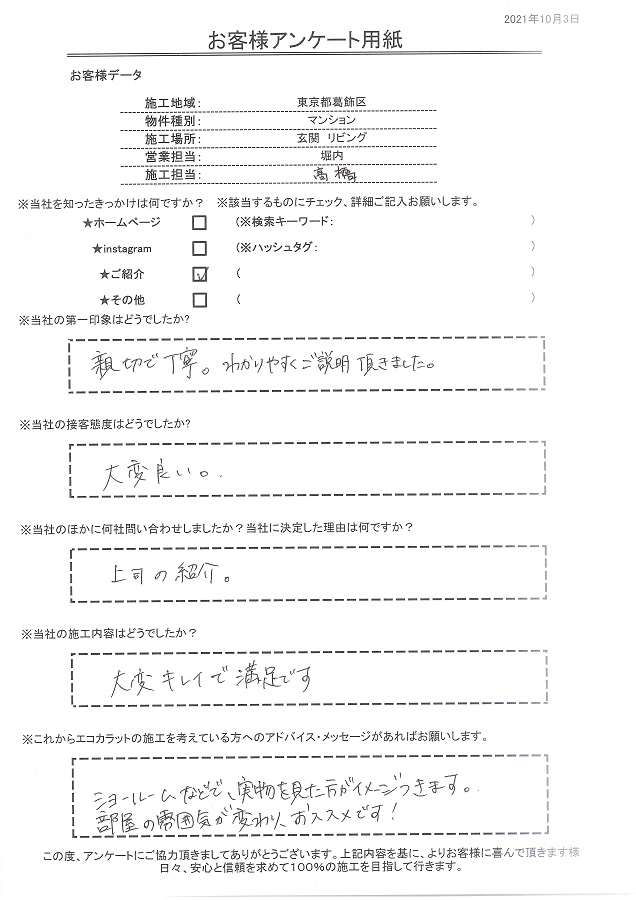 2021年10月3日
お客様アンケート用紙
お客様データ
施工地域: 東京都葛飾区
物件種別: マンション
施工場所: 玄関 リビング
営業担当: 堀内
施工担当: 高橋
※当社を知ったきっかけは何ですか? ※該当するものにチェック、詳細ご記入お願いします。
★ホームページ □ (※検索キーワード: )
★instagram □ (※ハッシュタグ: )
★ご紹介 ☑ ( )
★その他 □ ( )
※当社の第一印象はどうでしたか?
親切で丁寧。わかりやすくご説明頂きました。
※当社の接客態度はどうでしたか?
大変良い。.
※当社のほかに何社問い合わせしましたか?当社に決定した理由は何ですか?
上司の紹介。
※当社の施工内容はどうでしたか?
大変キレイで満足です
※これからエコカラットの施工を考えている方へのアドバイス・メッセージがあればお願いします。
ショールームなどで、実物を見た方がイメージつきます。
部屋の雰囲気が変わり、おススメです!
この度、アンケートにご協力頂きましてありがとうございます。上記内容を基に、よりお客様に喜んで頂きます様
日々、安心と信頼を求めて100%の施工を目指して行きます。